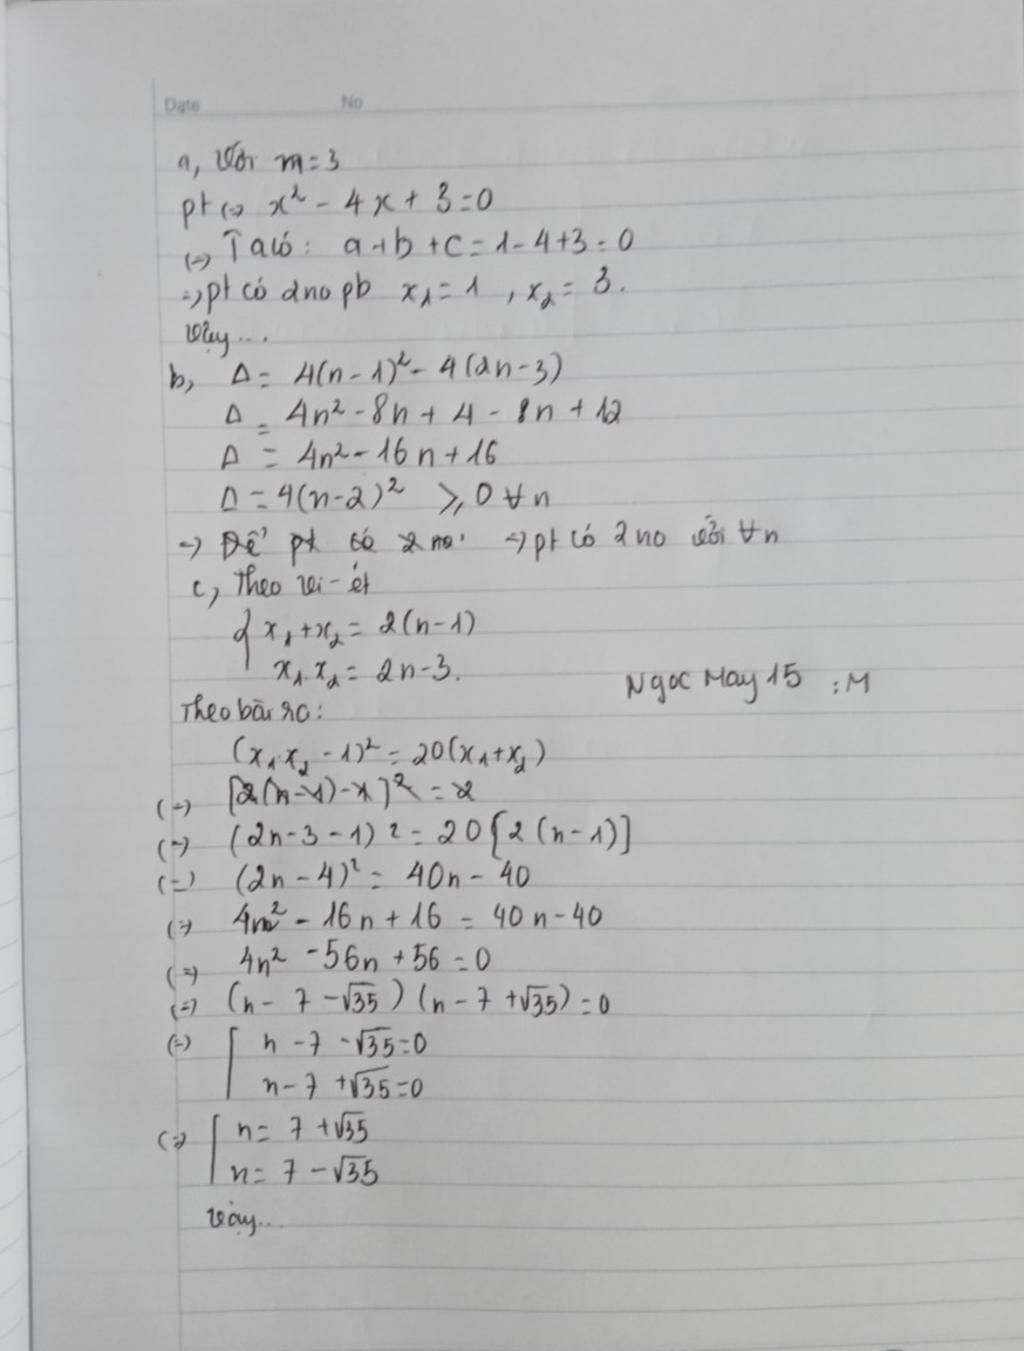 Date No
a, Với m = 3
pt (=) x² - 4x + 3 = 0
(=) Ta có: a + b + c = 1 - 4 + 3 = 0
=> pt có 2 no pb x₁ = 1 , x₂ = 3.
Vậy...
b, Δ = 4(n - 1)² - 4(2n - 3)
Δ = 4n² - 8n + 4 - 8n + 12
Δ = 4n² - 16n + 16
Δ = 4(n - 2)² ⩾ 0 ∀ n
=> Để pt có 2 no => pt có 2 no với ∀n
c, Theo vi-ét
{ x₁ + x₂ = 2(n - 1)
x₁.x₂ = 2n - 3.
Ngọc May 15 :M
Theo bài ra:
(x₁.x₂ - 1)² = 20(x₁ + x₂)
(=) [2(n - 1) - 1]² = 2
(=) (2n - 3 - 1)² = 20[2(n - 1)]
(=) (2n - 4)² = 40n - 40
(=) 4n² - 16n + 16 = 40n - 40
(=) 4n² - 56n + 56 = 0
(=) (n - 7 - √35)(n - 7 + √35) = 0
(=) [ n - 7 - √35 = 0
n - 7 + √35 = 0
(=) [ n = 7 + √35
n = 7 - √35
Vậy...